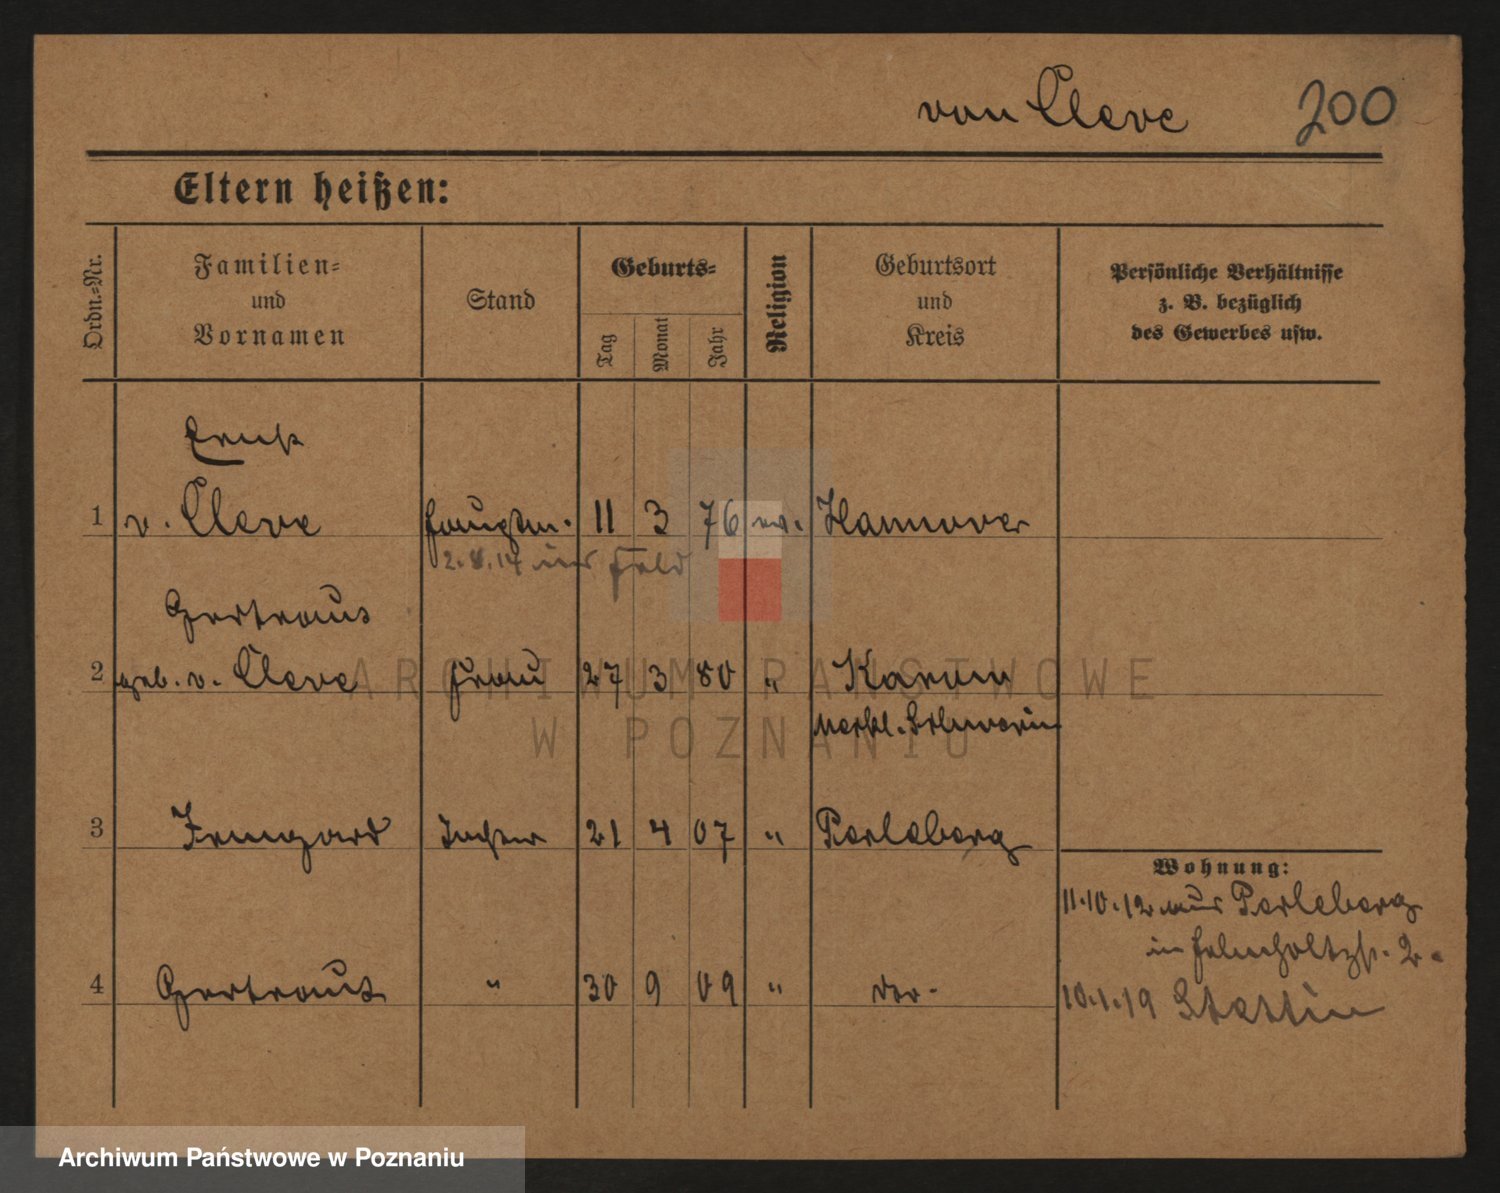 von Cleve 200
Eltern heißen:
Ordn.-Nr.
Familien-
und
Vornamen
Stand
Geburts-
Tag
Monat
Jahr
Religion
Geburtsort
und
Kreis
Persönliche Verhältnisse
z. B. bezüglich
des Gewerbes usw.
Ernst
1 v. Cleve Hauptm. 11 3 76 ev. Hannover
2.8.14 ins Feld
Gertraud
2 geb. v. Cleve Frau 27 3 80 " Karow
Meckl. Schwerin
3 Irmgard Tochter 21 4 07 " Perleberg
Wohnung:
11.10.12 aus Perleberg
in Helmholtzstr. 2.
4 Gertraud " 30 9 09 " do.
10.1.19 Stettin
ARCHIWUM PAŃSTWOWE
W POZNANIU
Archiwum Państwowe w Poznaniu